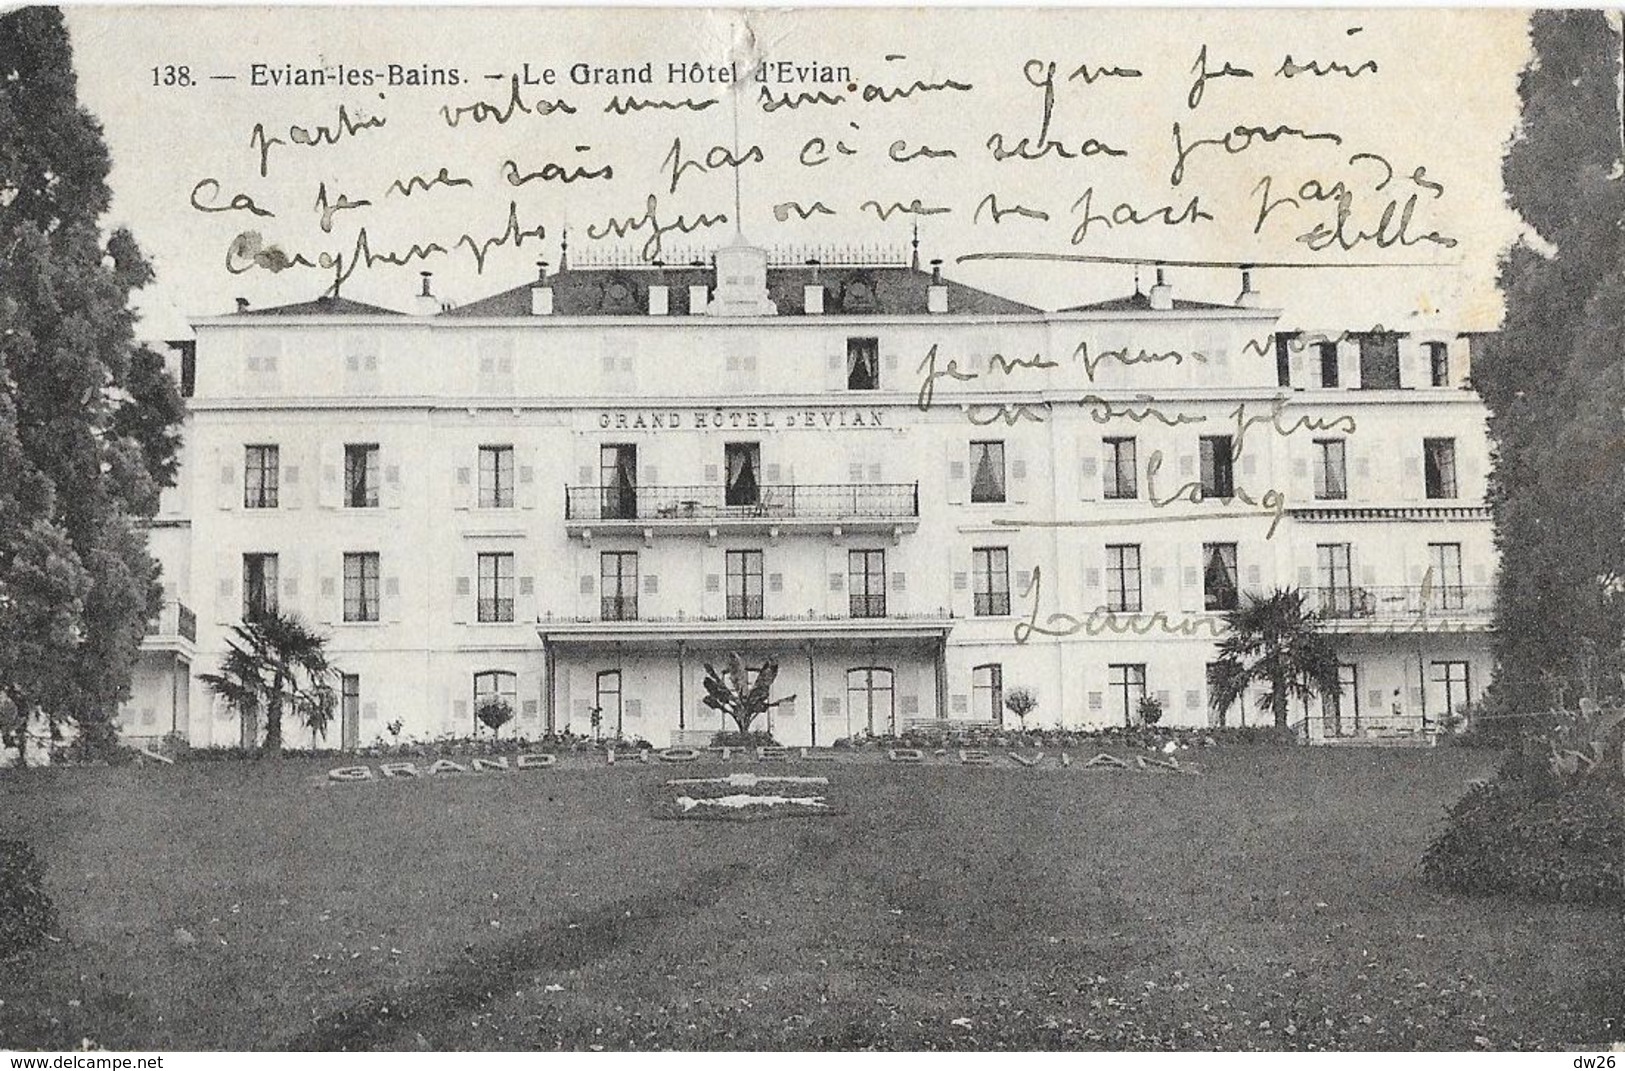 138. — Evian-les-Bains. — Le Grand Hôtel d'Evian.
parti voila une semaine que je suis
ca je ne sais pas ci ce sera pour
longtempts enfin on ne se fait pas de
je ne peus vous
en dire plus
long
GRAND HÔTEL D'EVIAN
GRAND HOTEL D'EVIAN
delcampe.net
dw26